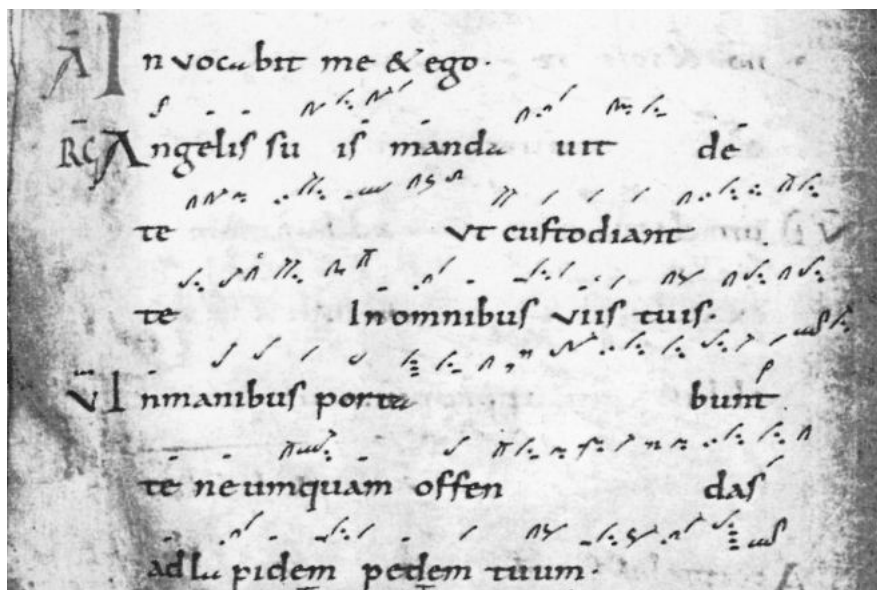 A In vocabit me & ego.
RC Angelis su is manda uit de
te vt custodiant
te In omnibus viis tuis.
V In manibus porta bunt
te ne umquam offen das
ad la pidem pedem tuum.